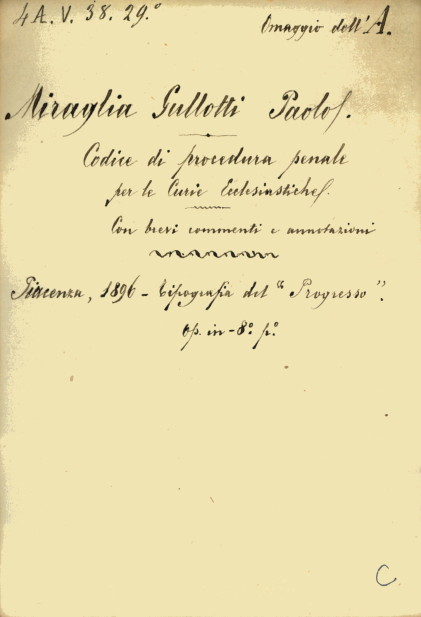 4 A. V. 38. 29.°
Omaggio dell'A.
Miraglia Gullotti Paolo.
Codice di procedura penale
per le Curie Ecclesiastiche.
Con brevi commenti e annotazioni
Piacenza, 1896 - Tipografia del "Progresso".
Op. in-8.° p.°
C